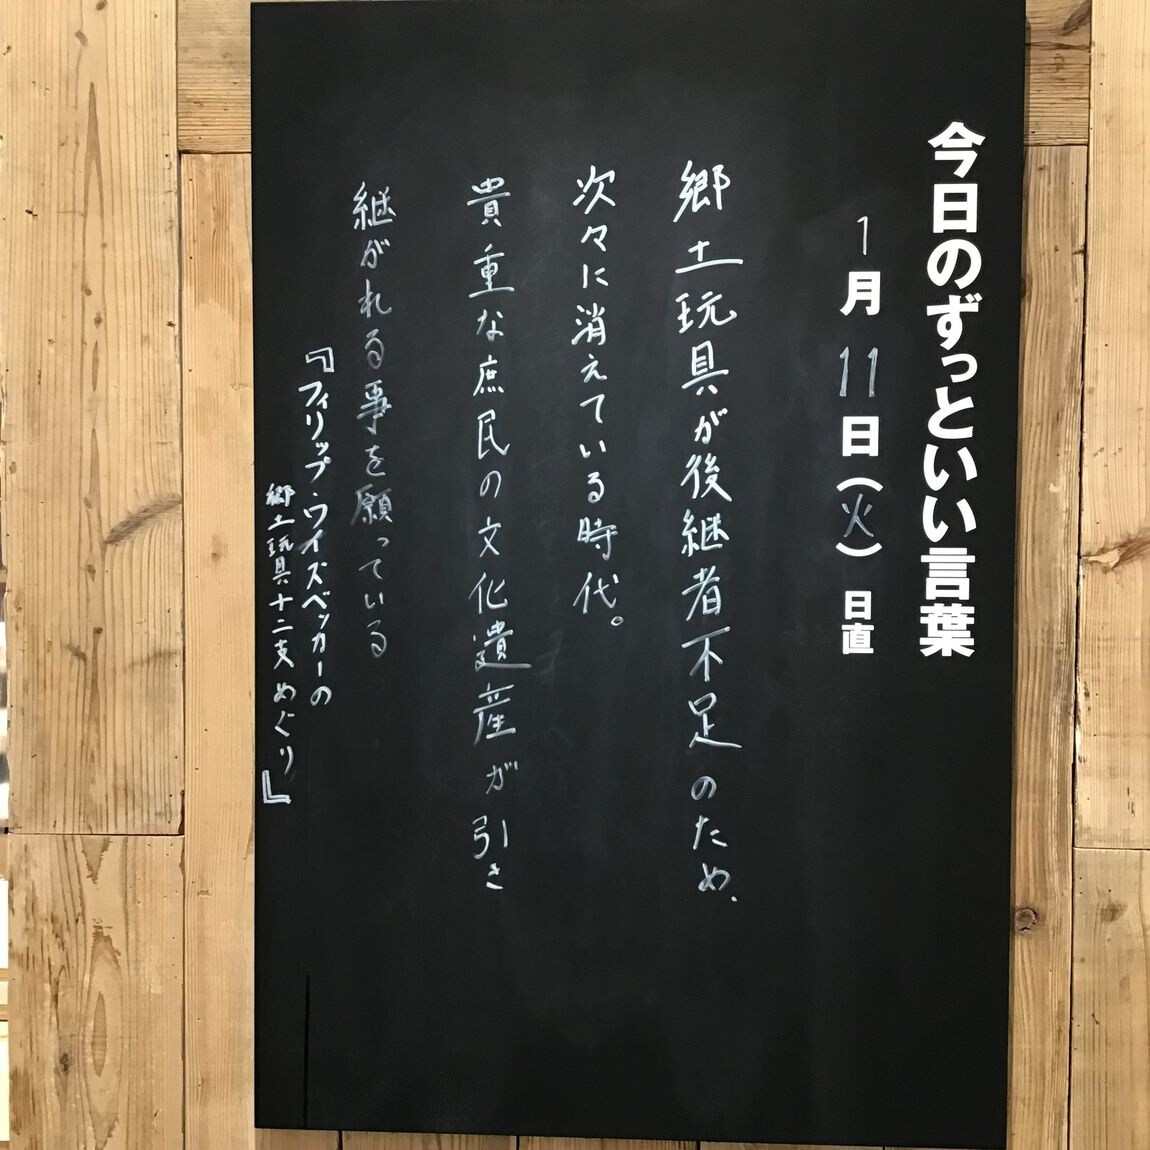 今日のずっといい言葉
1月11日(火) 日直
郷土玩具が後継者不足のため、
次々に消えている時代。
貴重な庶民の文化遺産が引き
継がれる事を願っている
『フィリップ・ワイズベッカーの
郷土玩具十二支めぐり』